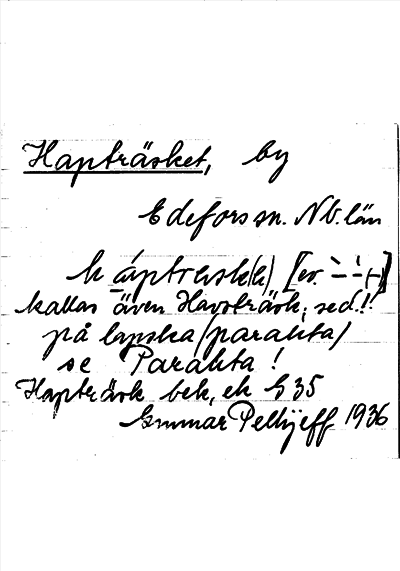 Hapträsket, by
Edefors sn. Nb. län
kallas även Havsträsk, sed!!
på lapska /parakta/
se Parakta!
Hapträsk bek, ek G 35
Gunnar Pellijeff 1936